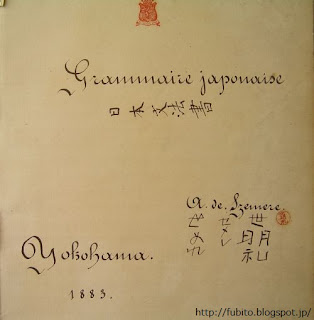 Grammaire japonaise
日本文法書
A. de. Szemere.
セメレ
Yokohama.
1883.
http://fubito.blogspot.jp/